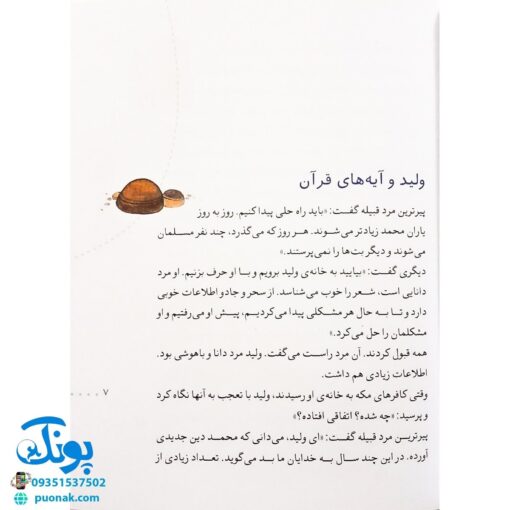 ولید و آیه‌های قرآن
پیرترین مرد قبیله گفت: «باید راه حلی پیدا کنیم. روز به روز
یاران محمد زیادتر می‌شوند. هر روز که می‌گذرد، چند نفر مسلمان
می‌شوند و دیگر بت‌ها را نمی‌پرستند.»
دیگری گفت: «بیایید به خانه‌ی ولید برویم و با او حرف بزنیم. او مرد
دانایی است، شعر را خوب می‌شناسد. از سحر و جادو اطلاعات خوبی
دارد و تا به حال هر مشکلی پیدا می‌کردیم، پیش او می‌رفتیم و او
مشکلمان را حل می‌کرد.»
همه قبول کردند. آن مرد راست می‌گفت. ولید مرد دانا و باهوشی بود.
اطلاعات زیادی هم داشت.
وقتی کافرهای مکه به خانه‌ی او رسیدند، ولید با تعجب به آنها نگاه کرد
و پرسید: «چه شده؟ اتفاقی افتاده؟»
پیرترین مرد قبیله گفت: «ای ولید، می‌دانی که محمد دین جدیدی
آورده. در این چند سال به خدایان ما بد می‌گوید. تعداد زیادی از
۷
پونک
09351537502
puonak.com